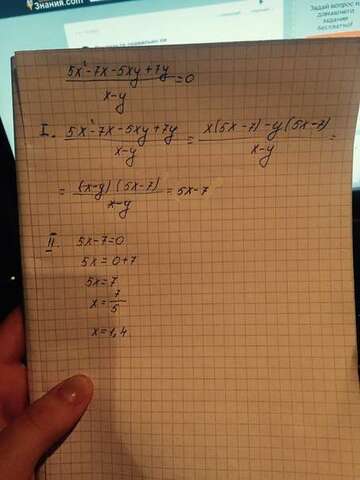 Знания.com
Задай вопрос и
домашнего
задания
бесплатно!
(5x²-7x-5xy+7y)/(x-y)=0
I. (5x²-7x-5xy+7y)/(x-y) = (x(5x-7)-y(5x-7))/(x-y) =
= ((x-y)(5x-7))/(x-y) = 5x-7
II. 5x-7=0
5x=0+7
5x=7
x=7/5
x=1,4